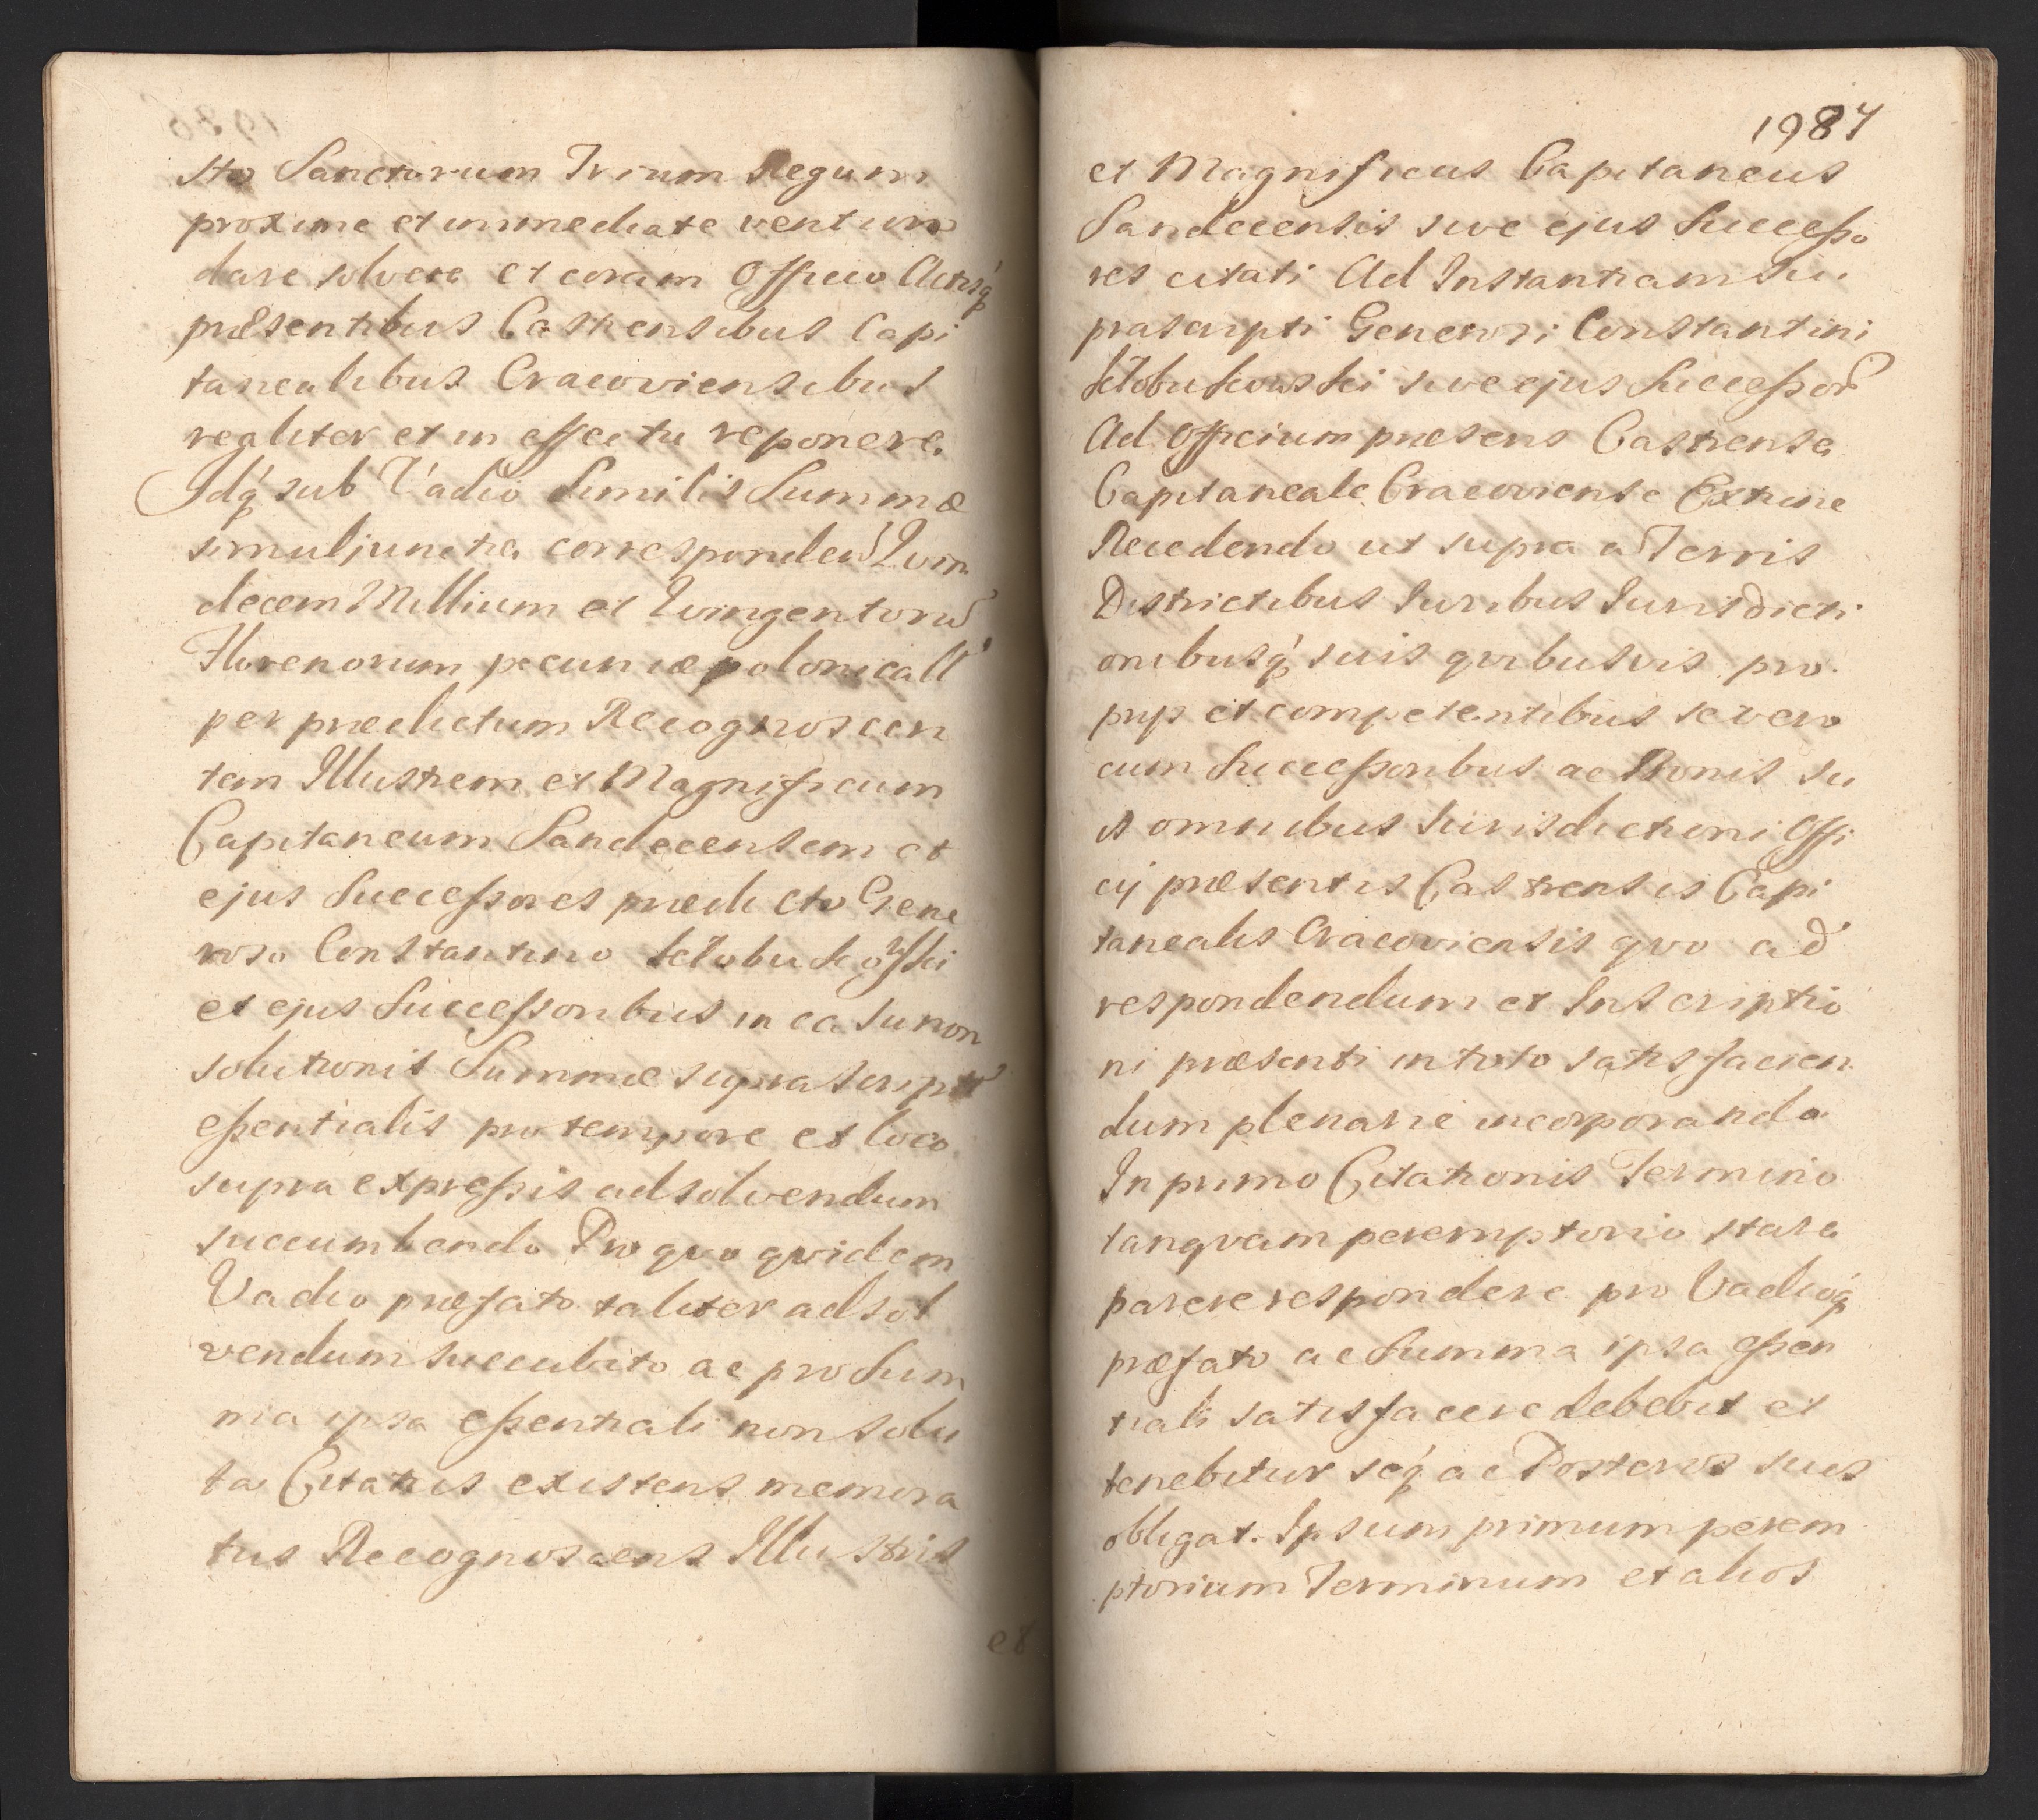 sto Sanctorum Trium Regum
proxime et immediate venturo
dare solvere et coram Officio Actisq́
præsentibus Castrensibus Capi
tanealibus Cracoviensibus
realiter et in effectu reponere.
Idq́ sub Vadio Similis Summæ
simuljunctæ correspondeñ Qvin
decem Millium et Qvingentorū
Florenorum pecuniæ polonicall
per prædictum Recognoscen
tem Illustrem et Magnificum
Capitaneum Sandecensem et
ejus Successores prædicto Gene
roso Constantino Kłobukowski
et ejus Successoribus in casu non
solutionis Summæ suprascriptæ
eſsentialis pro tempore et loco
supra expreſsis adsolvendum
succumbendo Pro qvo qvidem
Vadio præfato taliter adsol
vendum succubito ac pro Sum
ma ipsa eſsentiali non solu
ta Citatus existens memora
tus Recognoscens Illustris
et
1987
et Magnificus Capitaneus
Sandecensis sive ejus Succeſso
res citati Ad Instantiam Su
prascripti Generosi Constantini
Kłobukowski sive ejus Succeſsor
Ad Officium præsens Castrense
Capitaneale Cracoviense Extunc
Recedendo ut supra a Terris
Districtibus Juribus Jurisdicti
onibusq́ suis qvibusvis pro
prijs et competentibus se vero
cum Succeſsoribus ac Bonis su
is omnibus Jurisdictioni Offi
cij præsentis Castrensis Capi
tanealis Cracoviensis qvo ad
respondendum et Inscriptio
ni præsenti in toto satisfacien
dum plenarie incorporando
In primo Citationis Termino
tanqvam peremptorio stare
parere respondere pro Vadioq́
præfato ac Summa ipsa eſsen
tiali satisfacere debebit et
tenebitur seq́ ac Posteros suos
obligat. Ipsum primum perem
ptorium Terminum et alios